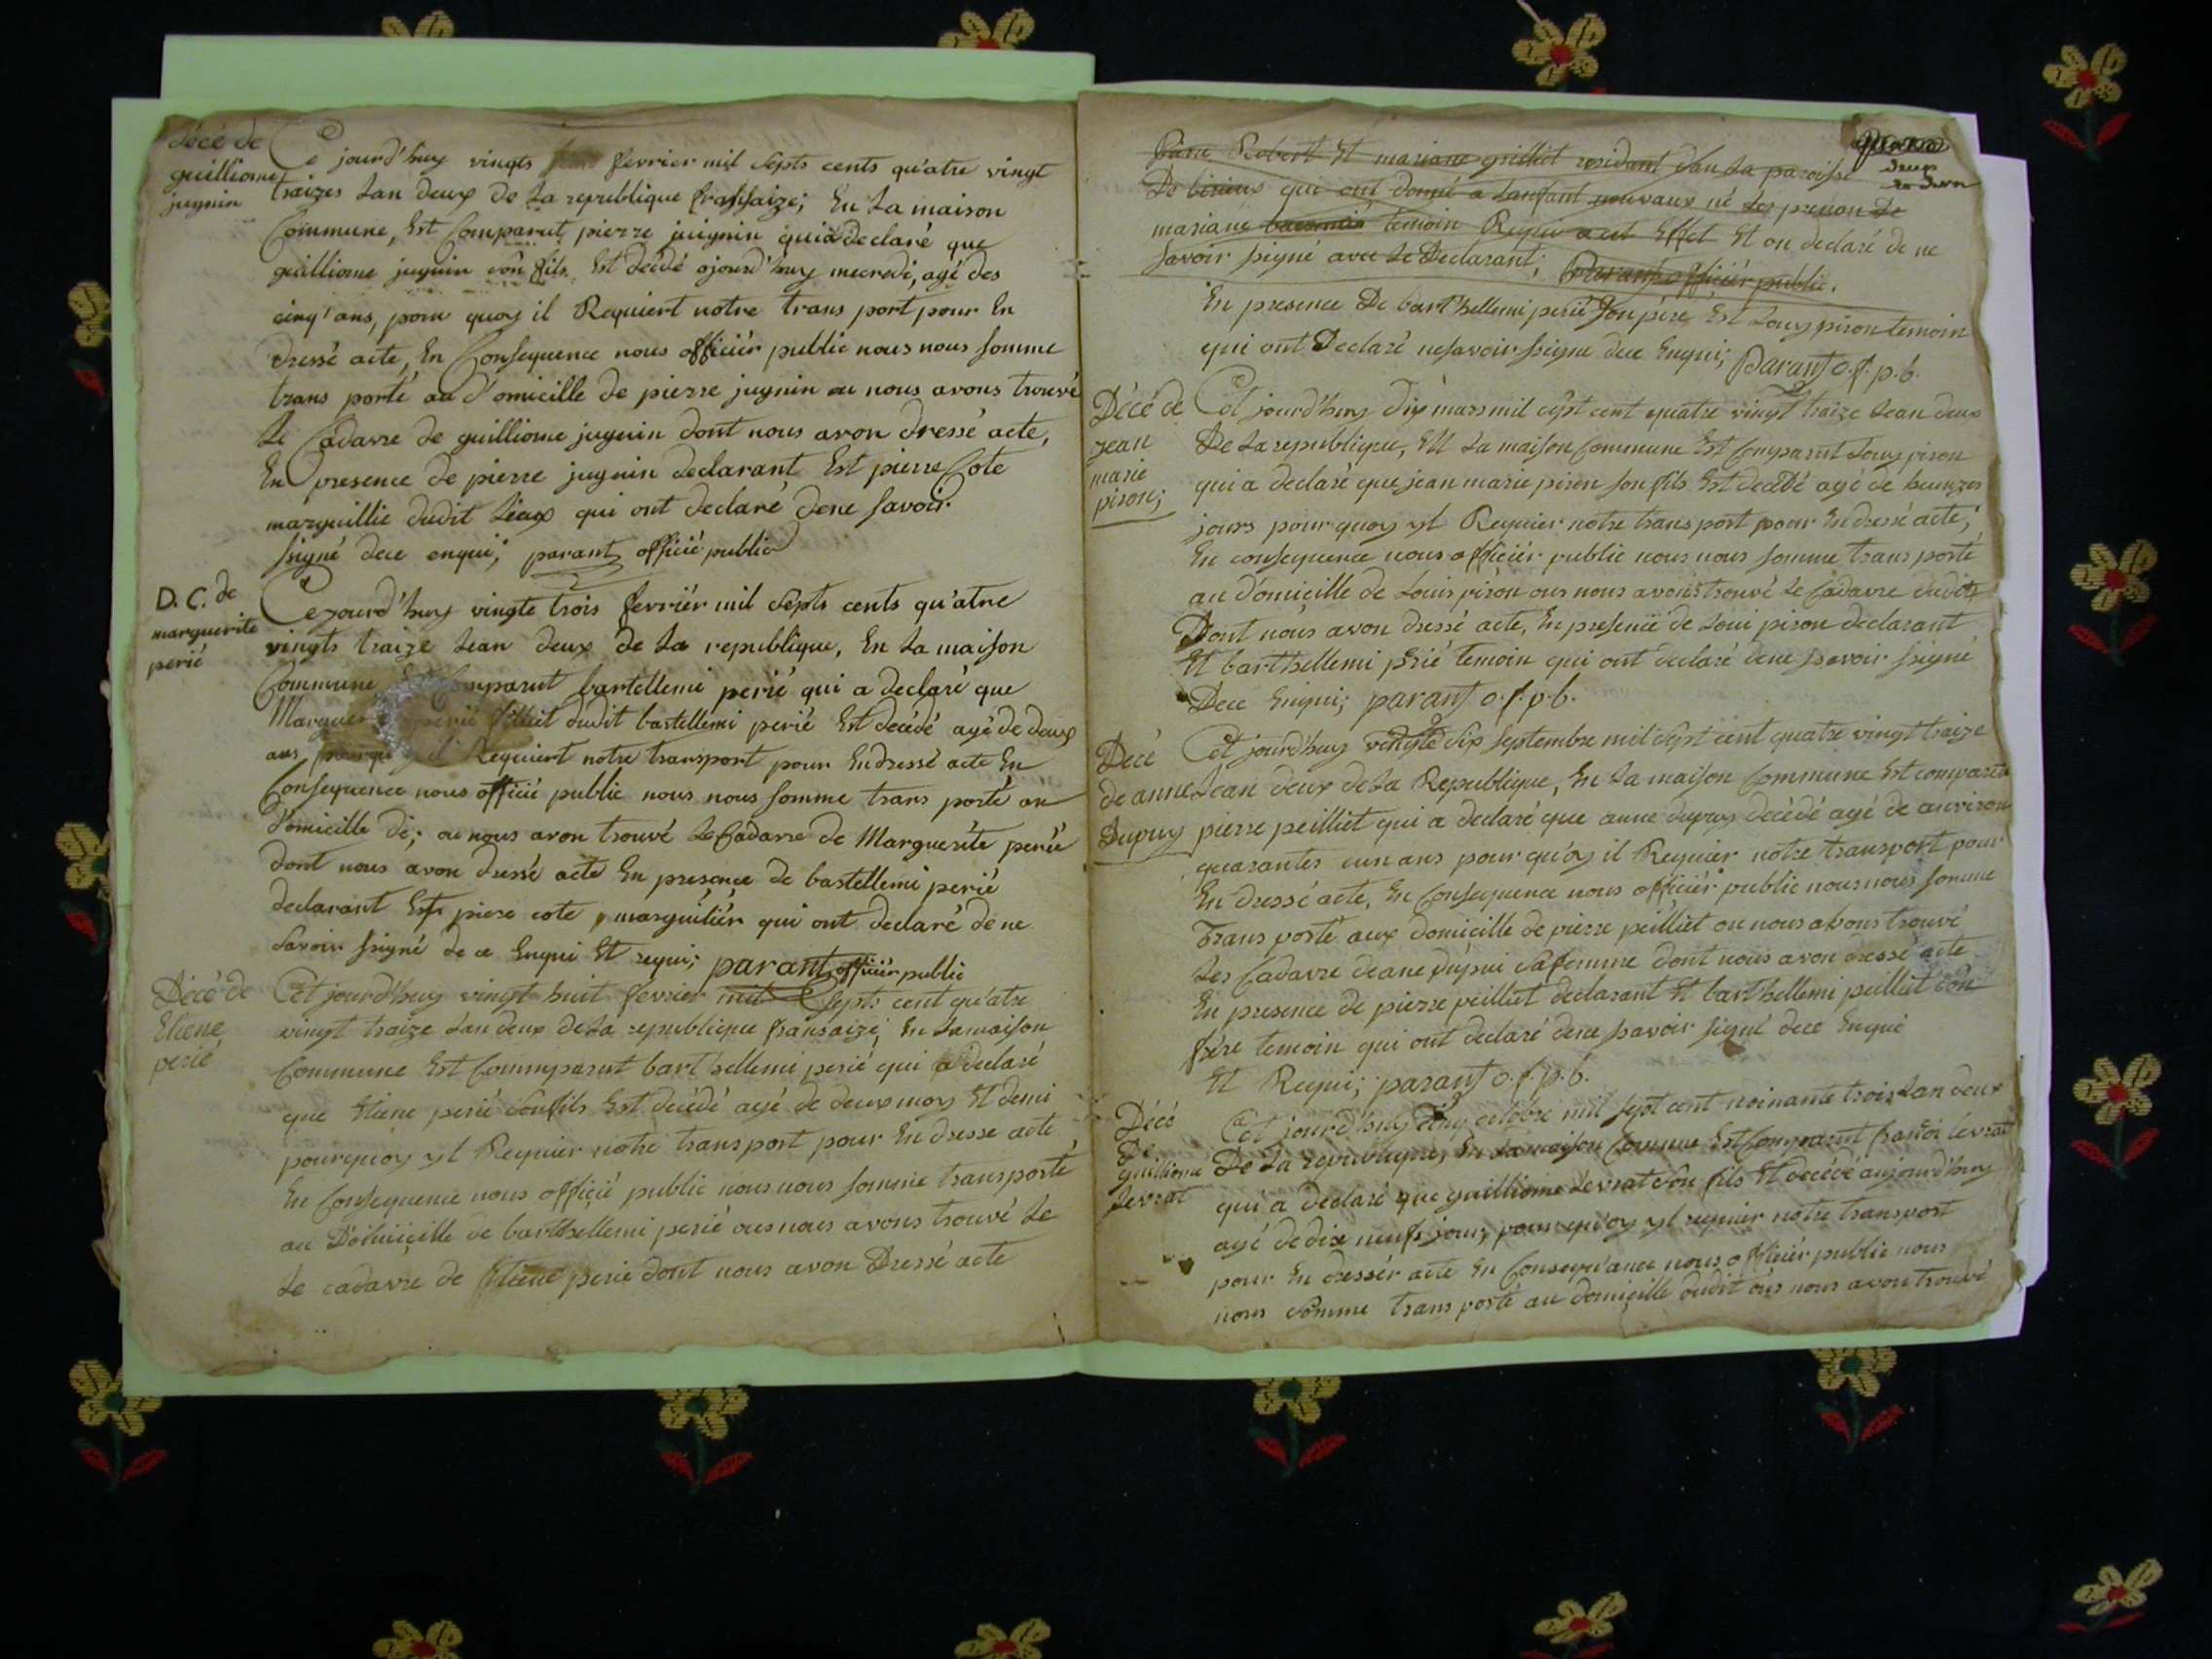 Décé de
guilliome
jugnin
Ce jourd'huy vingts fevrier mil septs cents qu'atre vingt
traizes Lan deux de La republique franssaize; En La maison
Commune, Est Comparut pierre juignin quia declaré que
guilliome jugnin son fils Est decédé ojourd'huy mecredi, agé des
cinq'ans, pour quoy il Requiert notre trans port pour En
dressé acte, En Consequence nous officiér public nous nous somme
trans porté au d'omicille de pierre jugnin ou nous avons trouvé
Le Cadavre de guilliome jugnin dont nous avon dressé acte,
En presence de pierre jugnin declarant Est pierre Cote
marguillié dudit Lieux qui ont declaré dene savoir
signé dece enqui; parant officié public
D. C. de
marguerite
perié
Cejourd'huy vingte trois ferriér mil septs cents qu'atre
vingts traize Lean deux de La republique, En La maison
Commune Comparut bartellemi perié qui a declaré que
Marguer perié filliet dudit bartellemi perié Est decédé agé de deux
ans il Requiert notre transport pour En dressé acte En
Consequence nous officié public nous nous somme trans porté au
d'omicille de; ou nous avon trouvé Le Cadavre de Marguerite perié
dont nous avon dressé acte En presence de bartellemi perié
declarant Est piere cote marguiliér qui ont declaré de ne
Savoir signé de ce Enqui Et requi; parant officiér public
Décé de
Etiene
perié
Cet jourd'huy vingt huit fevrier mil septs cent qu'atre
vingt traize Lan deux de La republique fransaize; En La maison
Commune Est Commparut bart'hellemi perié qui a declaré
que Etiene perié son fils Est decédé agé de deux moy Et demi
pourquoy yl Requier notre transport pour En dresse acte
En Consequence nous officié public nous nous somme transporté
au Domicille de barthellemi perié ous nous avons trouvé Le
Le cadavre de Etiene perié dont nous avon Dressé acte
deux
Piere Robert Et mariane grilliet residant dan La paroisse
De birieux qui ont donné a Lanfant nouvaux né Les prenon De
mariane temoin Requi a cet Effet Et on declaré de ne
savoir signé avec Le Declarant; Parant officiér public.
En presence De bart'hellemi perié son pére Est Louy pison temoin
qui ont Declaré nesavoir signe dece Enqui; Parant o.f.p.b.
Décé de
jean
marie
pison;
Cet jourd'huy dix mars mil cept cent quatre vingt traize Lean deux
De La republique, En La maison Commune Est Comparut Louy pison
qui a declaré que jean marie pison son fils Est decédé agé de
jours pour quoy yl Requier notre trans port pour En dressé acte;
En consequence nous officiér public nous nous somme trans porté
au d'omicille de Louis pison ous nous avons trouvé Le Cadavre dudit
Dont nous avon dressé acte, En presence de Loui pison declarant
Et barthellemi perié temoin qui ont declaré dene savoir signé
Dece Enqui; parant o.f.p.b.
Décé
de anne
Dupuy
Cet jourd'huy vingte six septembre mil sept cent quatre vingt traize
Lean deux de La Republique, En La maison Commune Est comparut
pierre peilliet qui a declaré que anne dupuy decédé agé de anviron
quarantes eun ans pour qu'oy il Requier notre transport pour
En dressé acte, En Consequence nous officiér public nous nous somme
Trans porté aux domicille de pierre peilliet ou nous avons trouvé
Les Cadavre deane dupui sa femme dont nous avon dressé acte
En presence de pierre peilliet declarant Et barthellemi peilliet son
frére temoin qui ont declaré dene savoir signé dece Enqui
Et Requi; parant o.f.p.b.
Décé
De
guilliome
Levrat
Cet jourd'huy cinq octobre mil sept cent noinante trois Lan deux
De La republique, En La maison Comune Est Comparut Levrat
qui a declaré que guilliome Levrat son fils Et decédé aujourd'huy
agé de dix neufs jour, pour qu'oy yl requier notre transport
pour En dressér acte En Consequ'ance nous officiér public nous
nous somme trans porté au domicille dudit ous nous avon trouvé